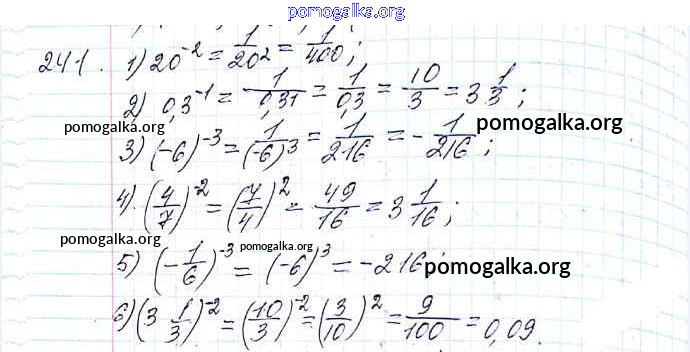 pomogalka.org
241. 1) 20^{-2} = \frac{1}{20^2} = \frac{1}{400};
2) 0,3^{-1} = \frac{1}{0,3^1} = \frac{1}{0,3} = \frac{10}{3} = 3\frac{1}{3};
pomogalka.org pomogalka.org
3) (-6)^{-3} = \frac{1}{(-6)^3} = \frac{1}{216} = -\frac{1}{216};
4). (\frac{4}{7})^{-2} = (\frac{7}{4})^2 = \frac{49}{16} = 3\frac{1}{16};
pomogalka.org pomogalka.org
5) (-\frac{1}{6})^{-3} = (-6)^3 = -216;
pomogalka.org
6) (3\frac{1}{3})^{-2} = (\frac{10}{3})^{-2} = (\frac{3}{10})^2 = \frac{9}{100} = 0,09.